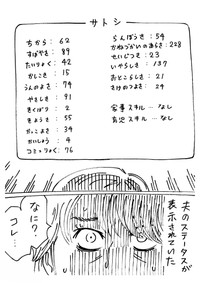 サトシ
ちから : 62
すばやさ : 89
たいりょく : 42
かしこさ : 15
うんのよさ : 74
やさしさ : 91
きくばり : 2
きようさ : 55
かっこよさ : 36
かいしょう : 4
コミュりょく : 76
らんぼうさ : 54
かねづかいのあらさ : 228
せいじつさ : 23
いやらしさ : 137
おとこらしさ : 21
さけのつよさ : 24
家事スキル … なし
育児スキル … なし
夫のステータスが
表示されていた
なに?
コレ…